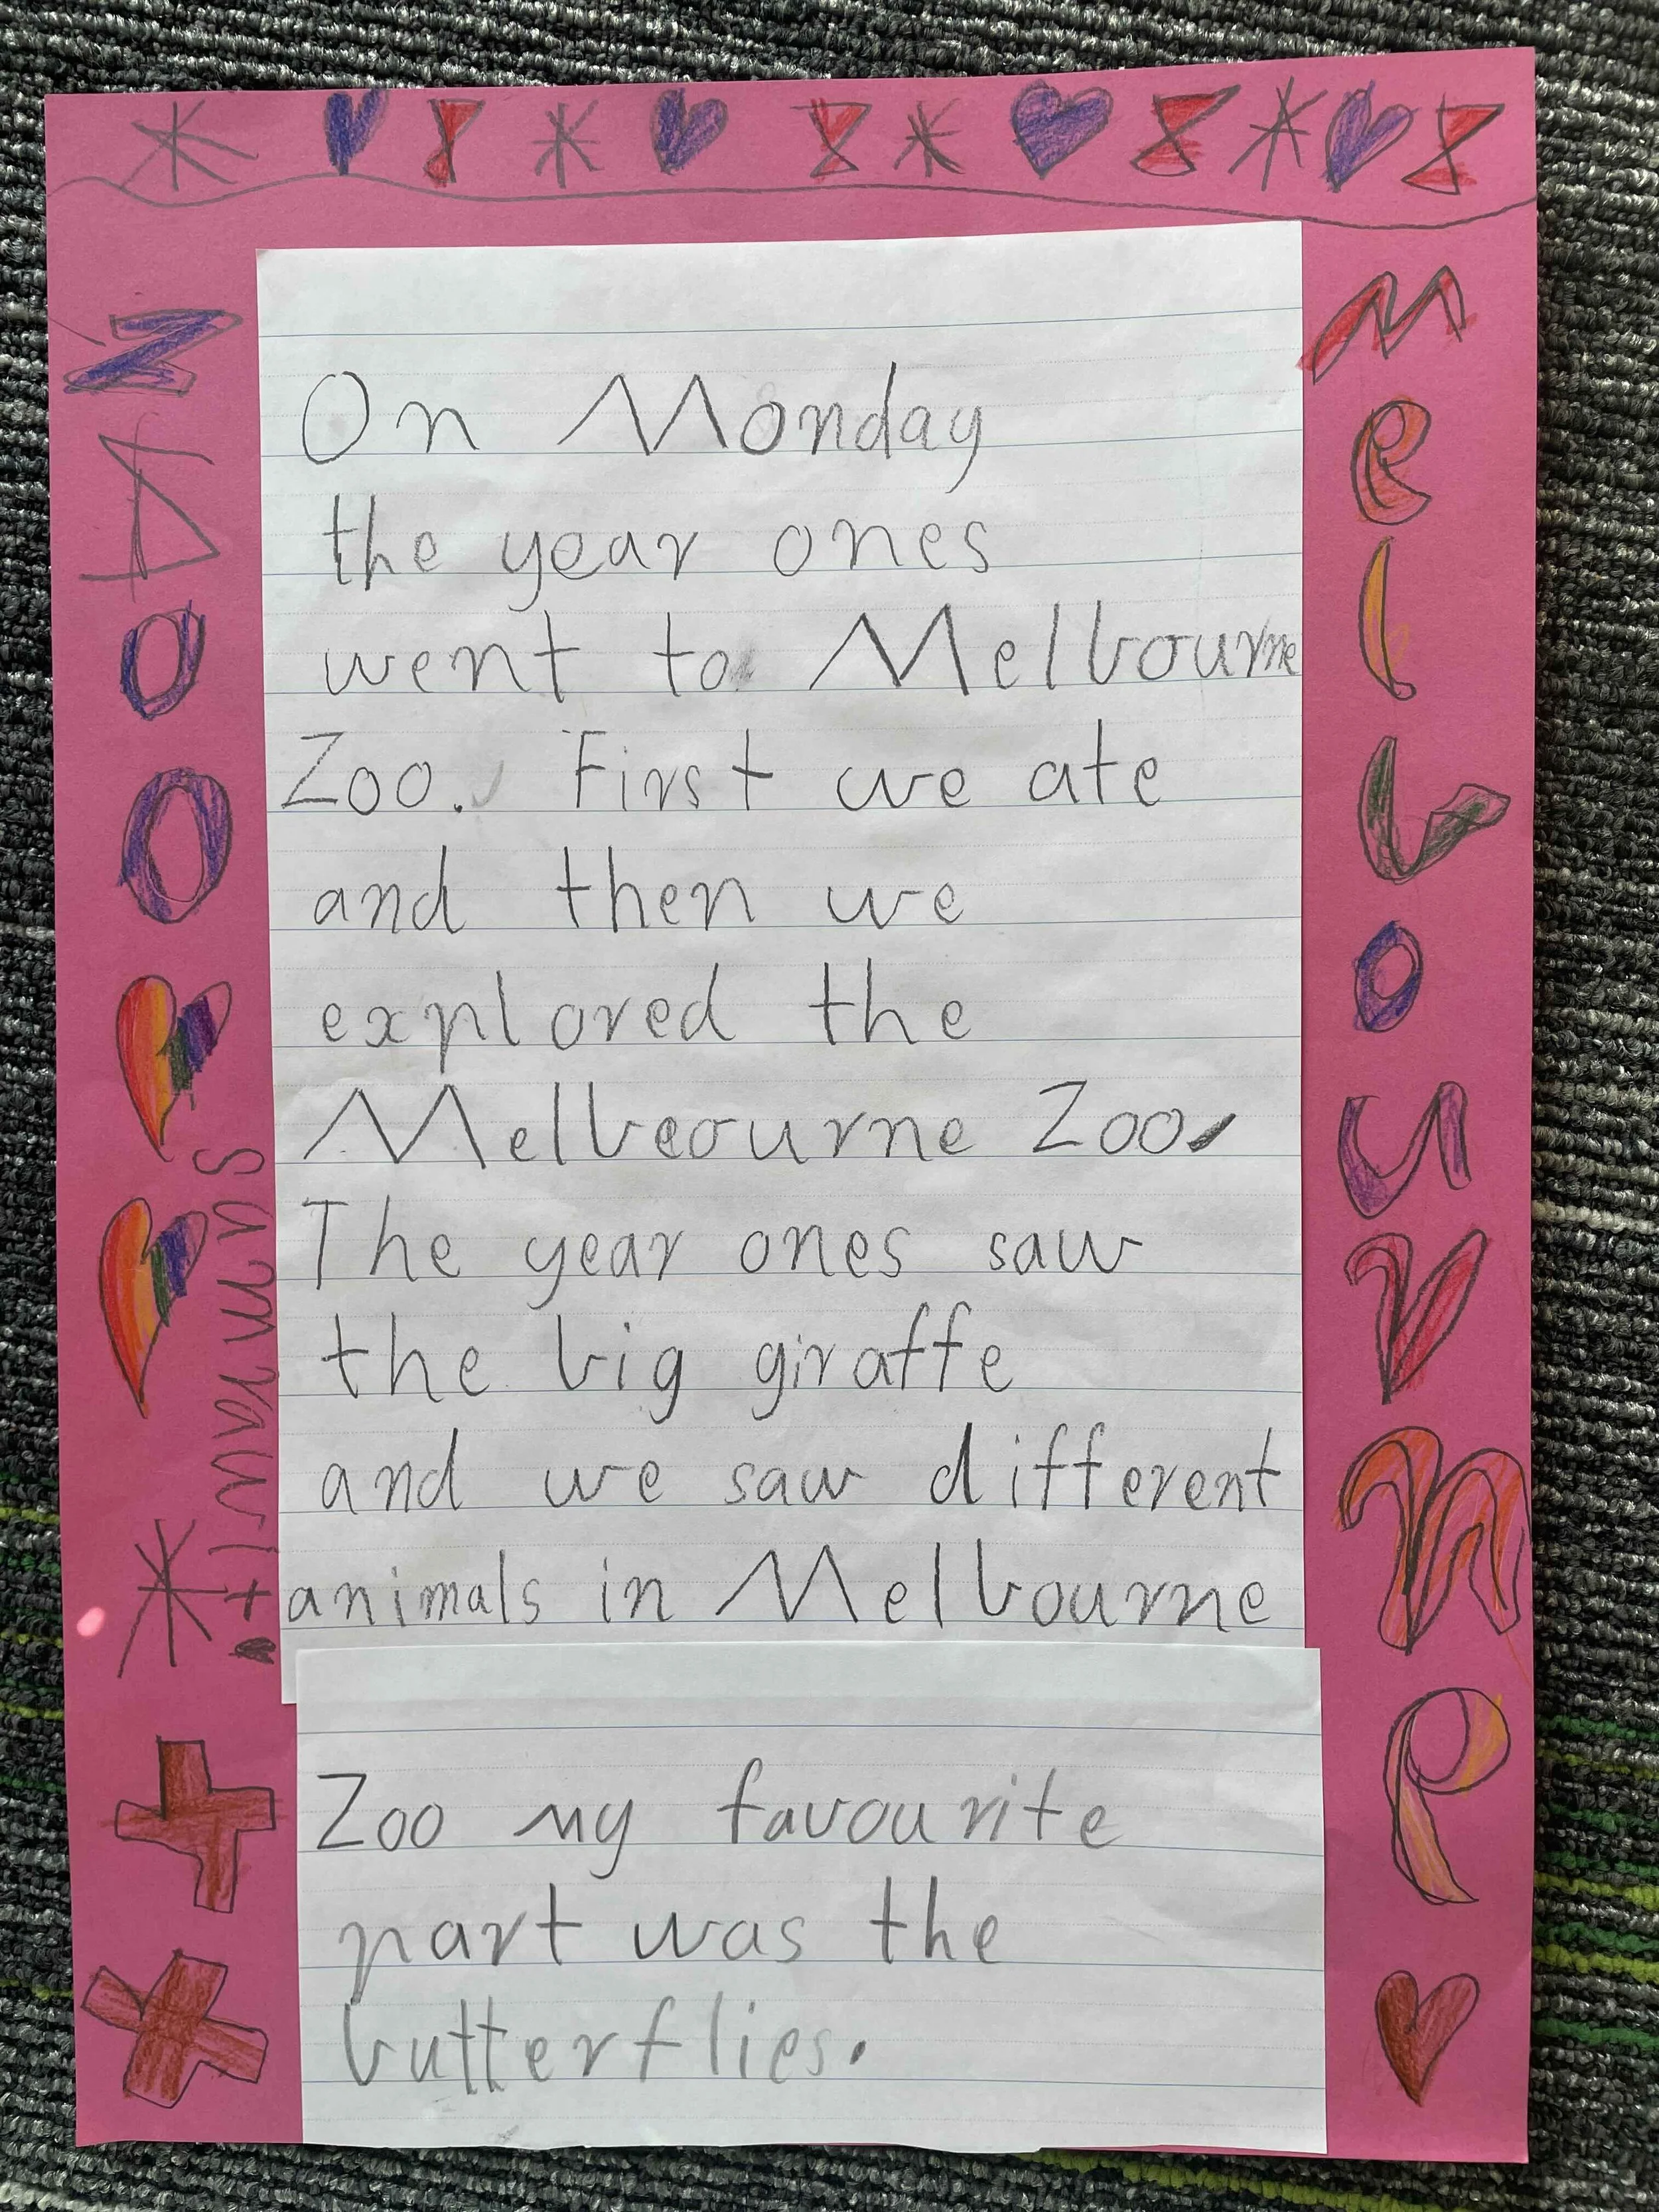 On Monday
the year ones
went to Melbourne
Zoo. First we ate
and then we
explored the
Melbeourne Zoo.
The year ones saw
the big giraffe
and we saw different
animals in Melbourne
Zoo my favourite
part was the
butterflies.
Melbourne
Zoo
Samrawit.